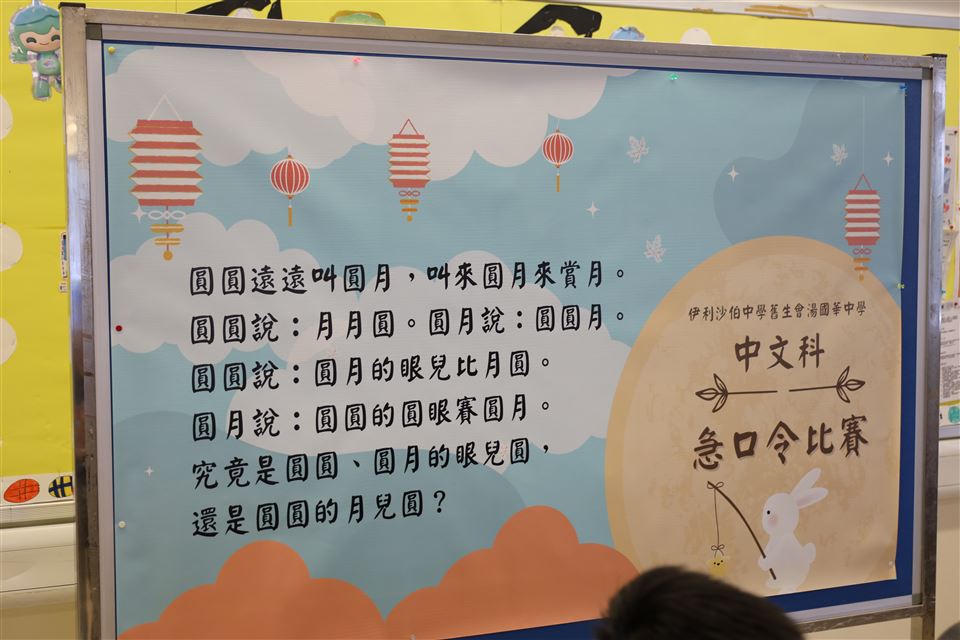 圓圓遠遠叫圓月，叫來圓月來賞月。
圓圓說：月月圓。圓月說：圓圓月。
圓圓說：圓月的眼兒比月圓。
圓月說：圓圓的圓眼賽圓月。
究竟是圓圓、圓月的眼兒圓，
還是圓圓的月兒圓？
伊利沙伯中學舊生會湯國華中學
中文科
急口令比賽